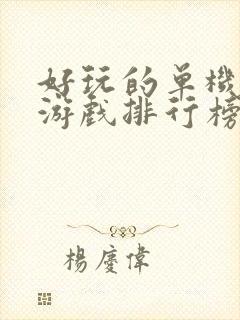 好玩的单機
游戲排行榜
楊慶偉